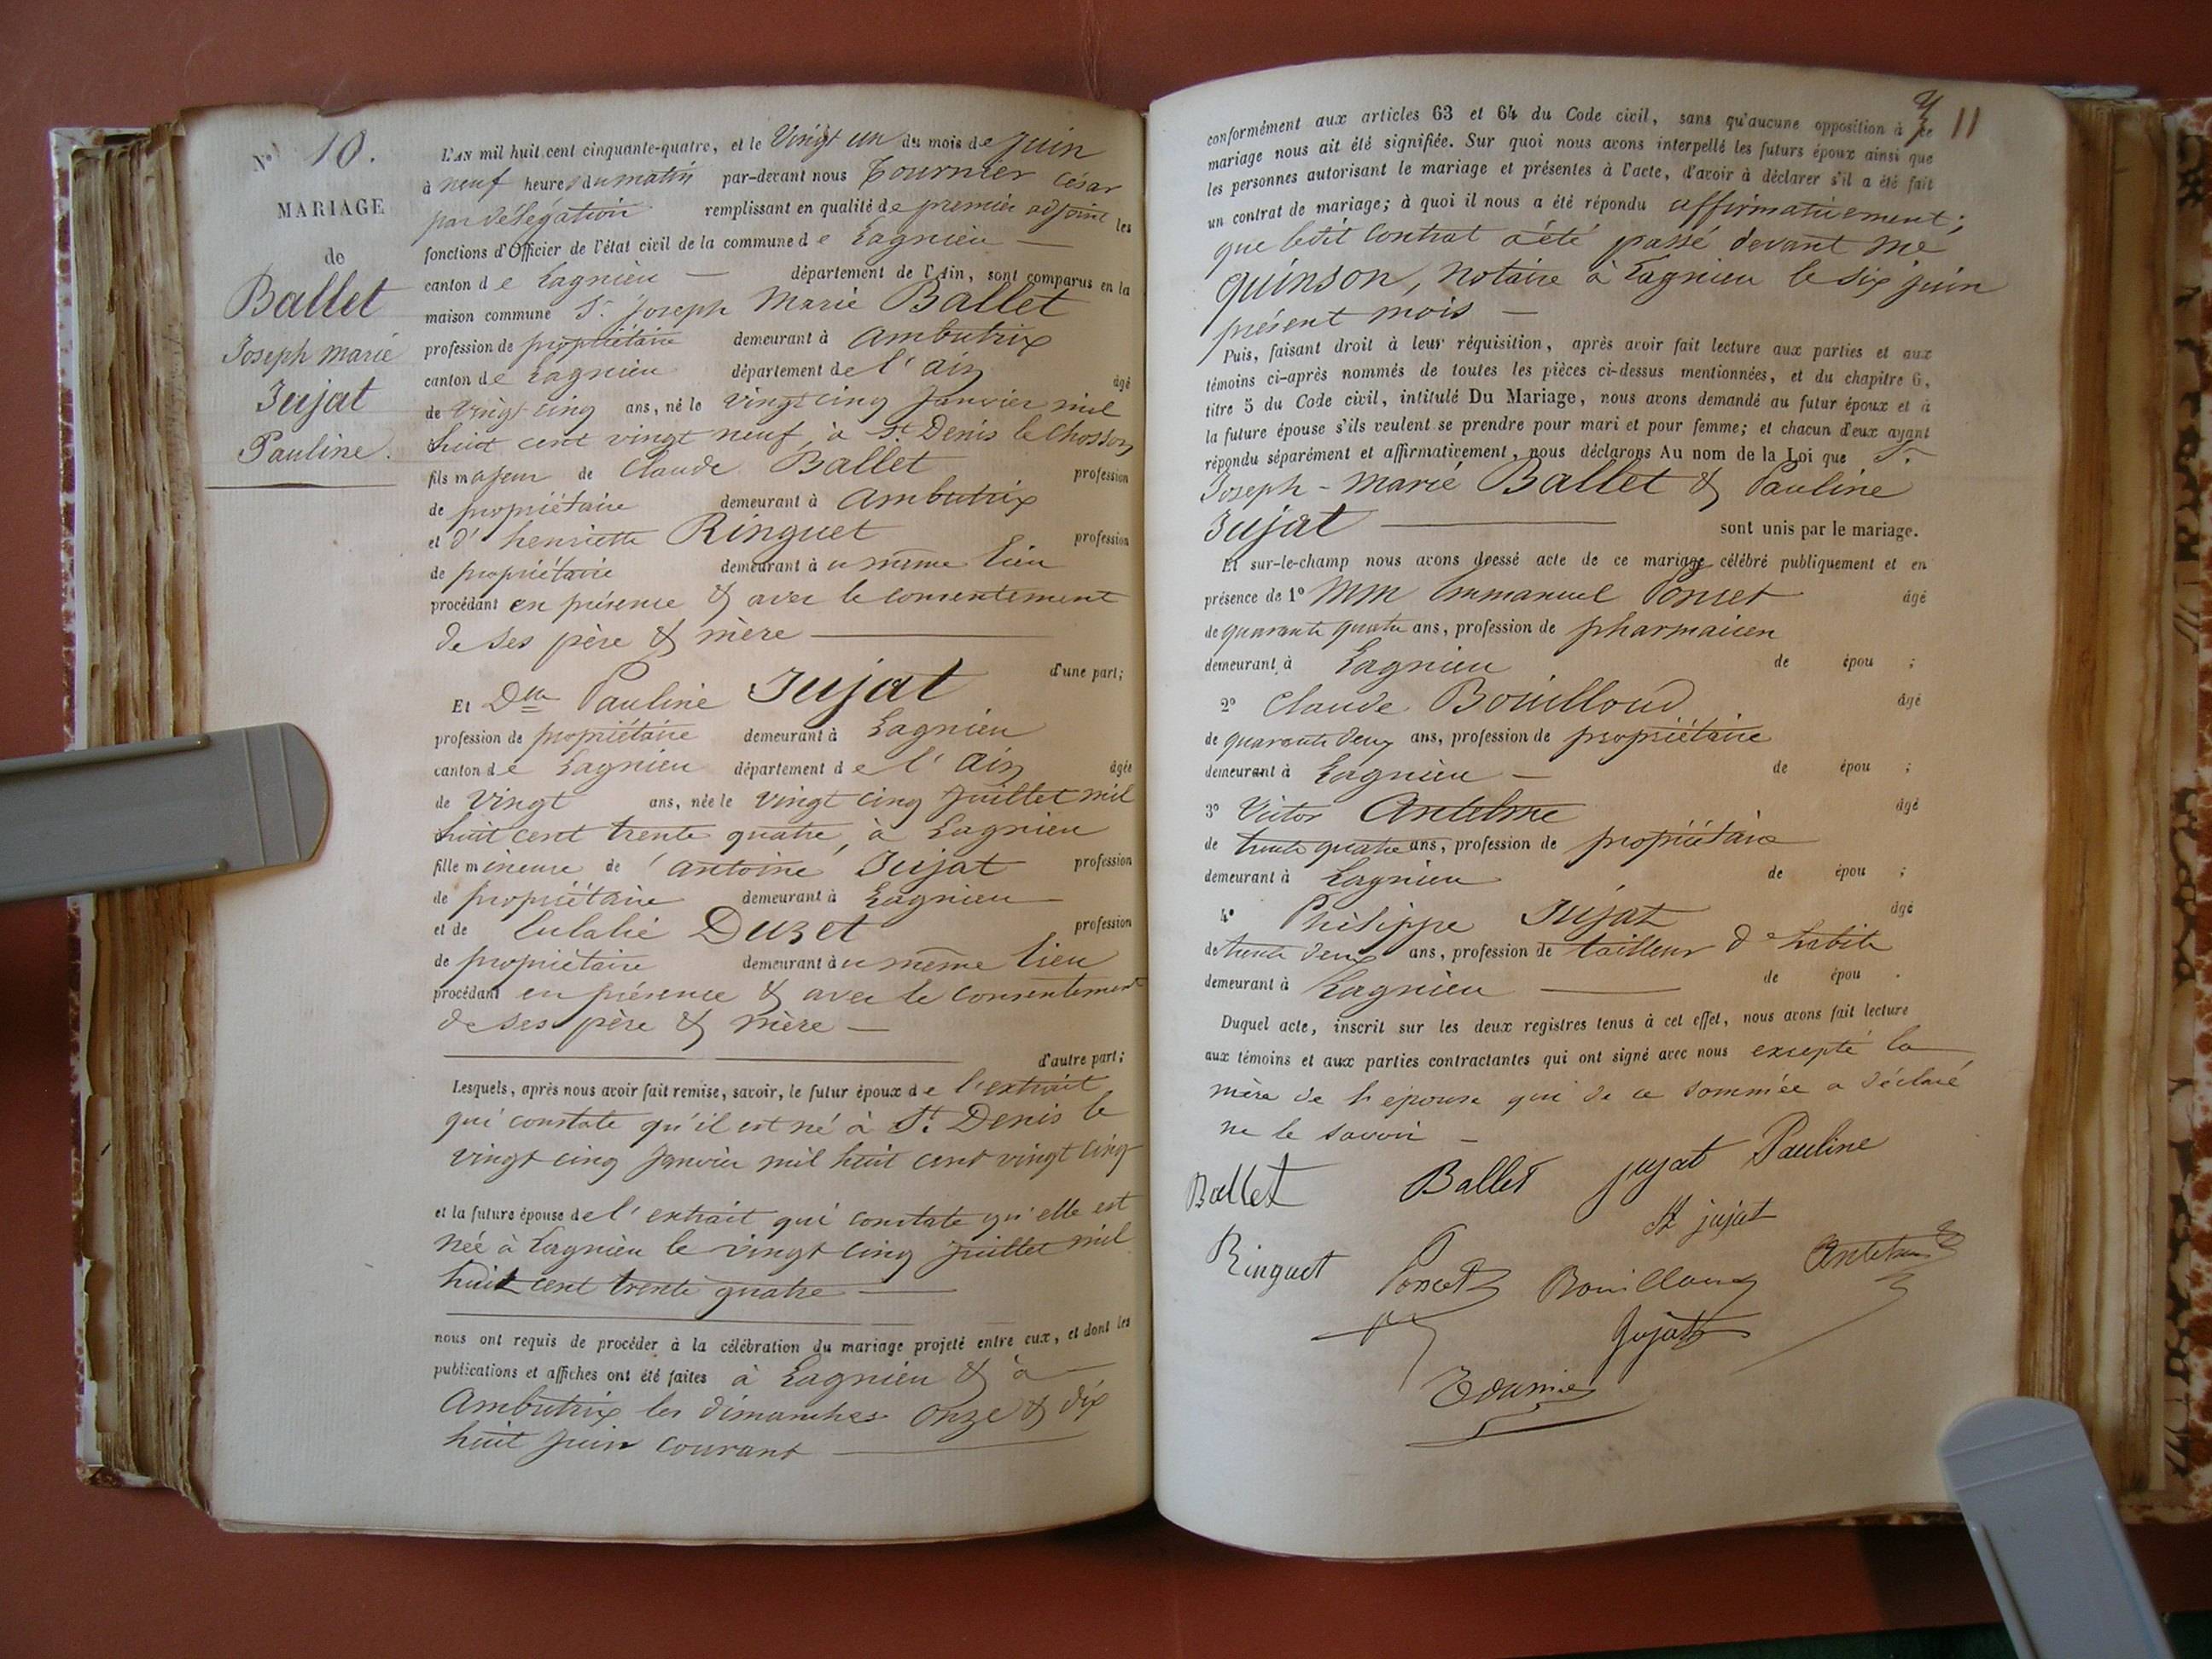 N° 10.
MARIAGE
de
Ballet
Joseph Marie
Jujat
Pauline.
L'AN mil huit cent cinquante-quatre, et le Vingt un du mois de juin
à neuf heures du matin par-devant nous Tournier César
par délégation remplissant en qualité de premier adjoint les
fonctions d'Officier de l'état civil de la commune de Lagnieu —
canton de Lagnieu — département de l'Ain, sont comparus en la
maison commune Sr. Joseph Marie Ballet
profession de propriétaire demeurant à Ambutrix
canton de Lagnieu département de l'Ain âgé
de Vingt cinq ans, né le vingt cinq Janvier mil
huit cent vingt neuf, à St. Denis le Chosson
fils majeur de Claude Ballet profession
de propriétaire demeurant à Ambutrix
et d' henriette Ringuet profession
de propriétaire demeurant à u même lieu
procédant en présence & avec le consentement
de ses père & mère —
d'une part;
Et Dlle Pauline Jujat
profession de propriétaire demeurant à Lagnieu
canton de Lagnieu département de l'Ain âgée
de Vingt ans, née le vingt cinq Juillet mil
huit cent trente quatre, à Lagnieu
fille mineure de Antoine Jujat profession
de propriétaire demeurant à Lagnieu —
et de Eulalie Duzet profession
de propriétaire demeurant à u même lieu
procédant en présence & avec le consentement
de ses père & mère —
d'autre part;
Lesquels, après nous avoir fait remise, savoir, le futur époux de l'extrait
qui constate qu'il est né à St. Denis le
vingt cinq Janvier mil huit cent vingt cinq
et la future épouse de l'extrait qui constate qu'elle est
née à Lagnieu le vingt cinq Juillet mil
huit cent trente quatre —
nous ont requis de procéder à la célébration du mariage projeté entre eux, et dont les
publications et affiches ont été faites à Lagnieu & à
Ambutrix les dimanches onze & dix
huit juin courant —
11
conformément aux articles 63 et 64 du Code civil, sans qu'aucune opposition à ce
mariage nous ait été signifiée. Sur quoi nous avons interpellé les futurs époux ainsi que
les personnes autorisant le mariage et présentes à l'acte, d'avoir à déclarer s'il a été fait
un contrat de mariage; à quoi il nous a été répondu affirmativement;
que ledit contrat a été passé devant Me
Quinson, notaire à Lagnieu le six juin
présent mois —
Puis, faisant droit à leur réquisition, après avoir fait lecture aux parties et aux
témoins ci-après nommés de toutes les pièces ci-dessus mentionnées, et du chapitre 6,
titre 5 du Code civil, intitulé Du Mariage, nous avons demandé au futur époux et à
la future épouse s'ils veulent se prendre pour mari et pour femme; et chacun d'eux ayant
répondu séparément et affirmativement, nous déclarons Au nom de la Loi que Sr.
Joseph-Marie Ballet & Pauline
Jujat — sont unis par le mariage.
Et sur-le-champ nous avons dressé acte de ce mariage célébré publiquement et en
présence de 1° Mm Emmanuel Poncet âgé
de quarante quatre ans, profession de pharmacien
demeurant à Lagnieu de épou ;
2° Claude Bouilloud âgé
de quarante deux ans, profession de propriétaire
demeurant à Lagnieu — de épou ;
3° Victor Antelme âgé
de trente quatre ans, profession de propriétaire
demeurant à Lagnieu de épou ;
4° Philippe Jujat âgé
de trente deux ans, profession de tailleur d'habits
demeurant à Lagnieu — de épou .
Duquel acte, inscrit sur les deux registres tenus à cet effet, nous avons fait lecture
aux témoins et aux parties contractantes qui ont signé avec nous excepté la
mère de l'épouse qui de ce sommée a déclaré
ne le savoir —
Ballet Ballet jujat Pauline
jujat
Ringuet Poncet Bouilloud Antelme
Jujat
Tournier